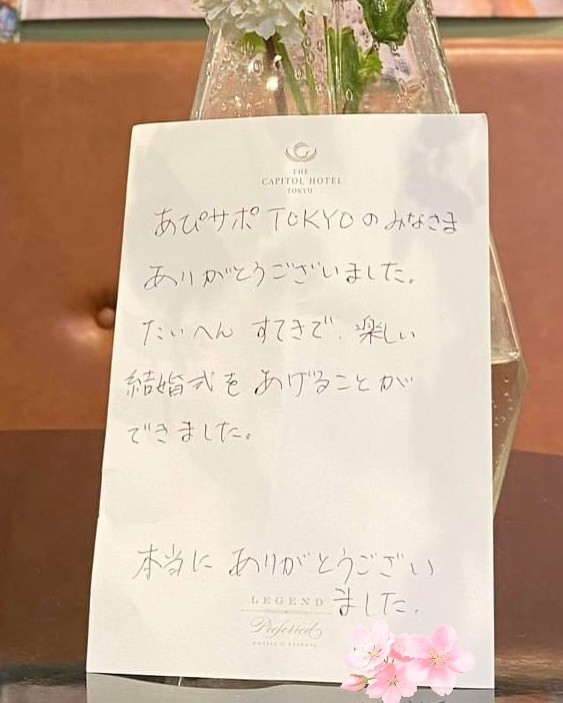 THE
CAPITOL HOTEL
TOKYU
あぴサポTOKYOのみなさま
ありがとうございました。
たいへん すてきで、楽しい
結婚式を あげることが
できました。
本当に ありがとうござい
ました。
LEGEND
Preferred
HOTELS & RESORTS